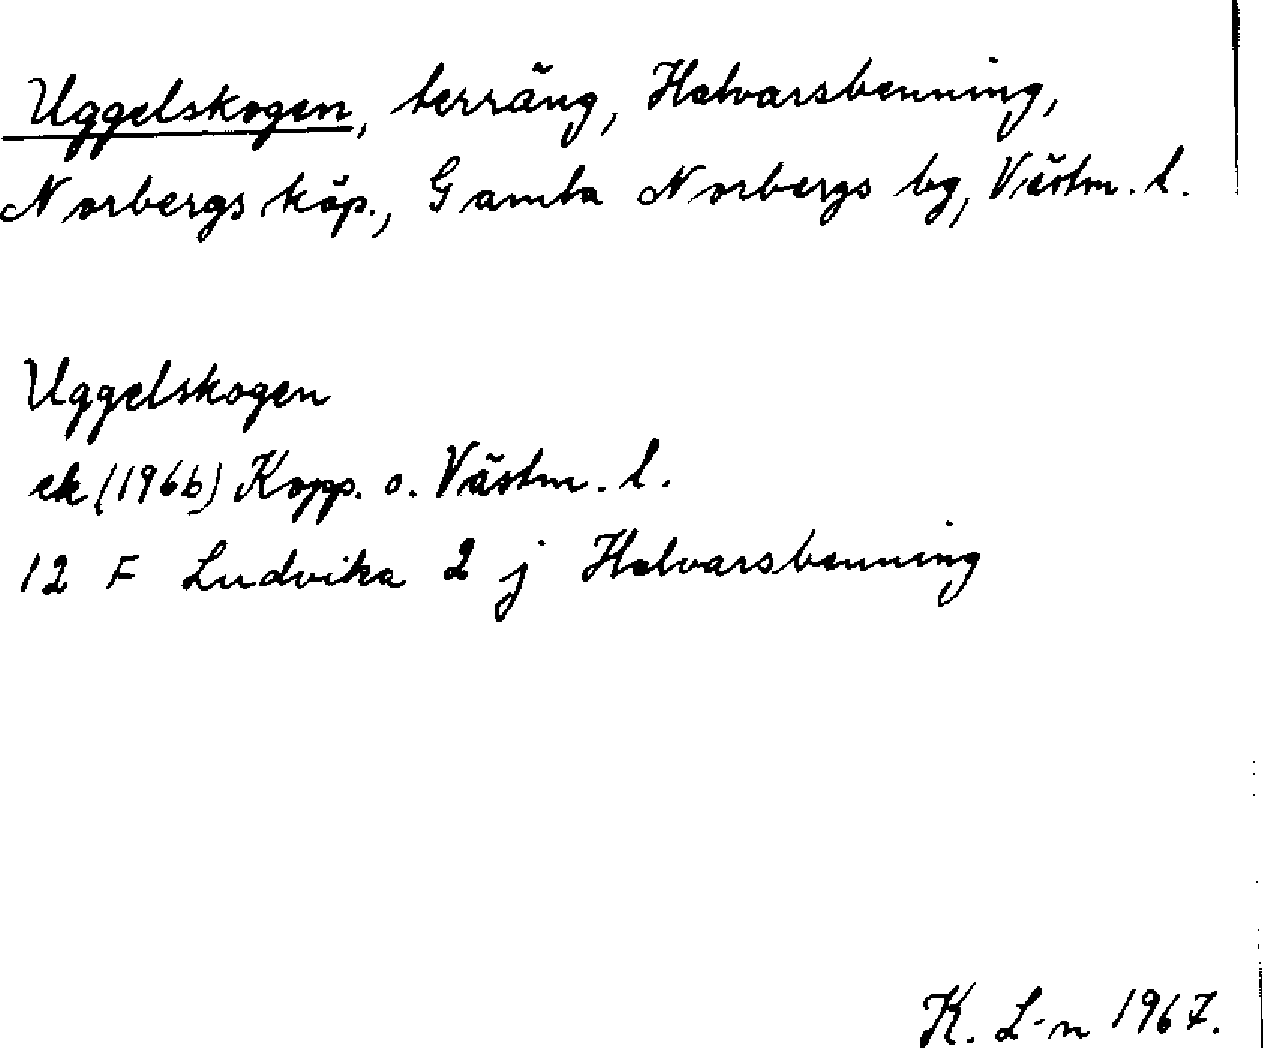 Uggelskogen, terräng, Halvarsbenning,
Norbergs köp., Gamla Norbergs bg, Västm. l.
Uggelskogen
ek (1966) Kopp. o. Västm. l.
12 F Ludvika 2 j Halvarsbenning
K. L-n 1967.